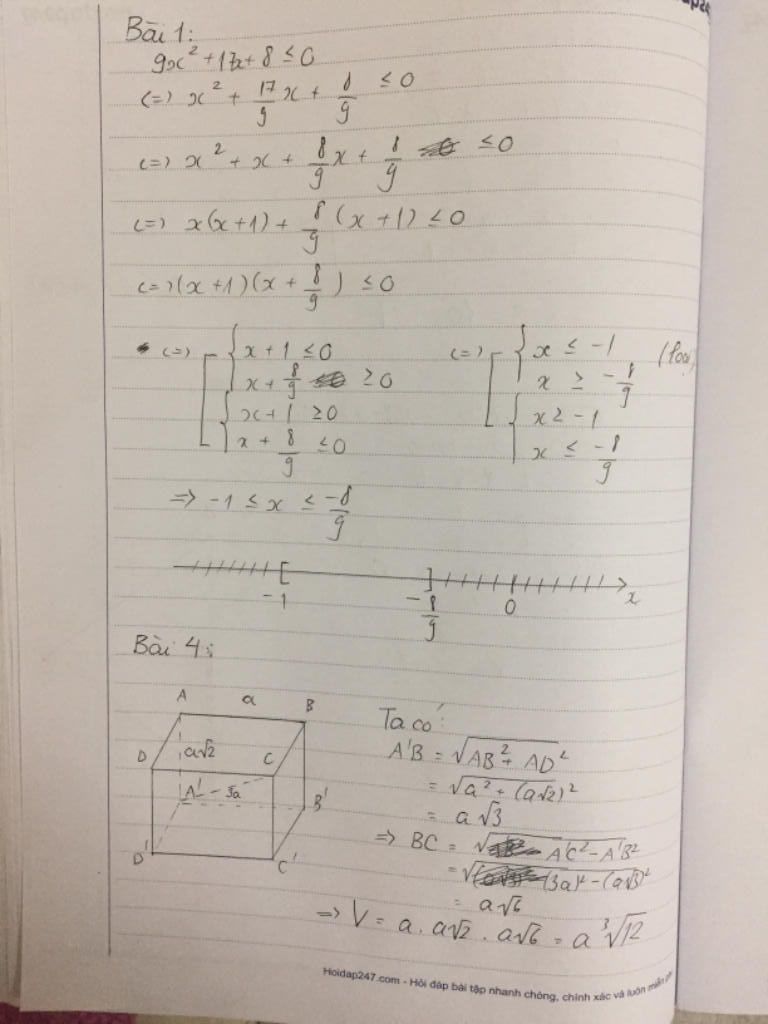 Bài 1:
9x² + 17x + 8 ≤ 0
(=) x² + 17/9 x + 8/9 ≤ 0
(=) x² + x + 8/9 x + 8/9 ≤ 0
(=) x(x+1) + 8/9 (x+1) ≤ 0
(=) (x+1)(x + 8/9) ≤ 0
(=) [ { x+1 ≤ 0 (=) [ { x ≤ -1 (loại)
x + 8/9 ≥ 0 x ≥ -8/9
{ x+1 ≥ 0 { x ≥ -1
x + 8/9 ≤ 0 x ≤ -8/9
=> -1 ≤ x ≤ -8/9
-1 -8/9 0 x
Bài 4:
A a B
D a√2 C
A' 3a B'
D' C'
Ta có:
A'B = √AB² + AD²
= √a² + (a√2)²
= a√3
=> BC = √A'C² - A'B²
= √(3a)² - (a√3)²
= a√6
=> V = a . a√2 . a√6 = a ³√12
Hoidap247.com - Hỏi đáp bài tập nhanh chóng, chính xác và luôn miễn